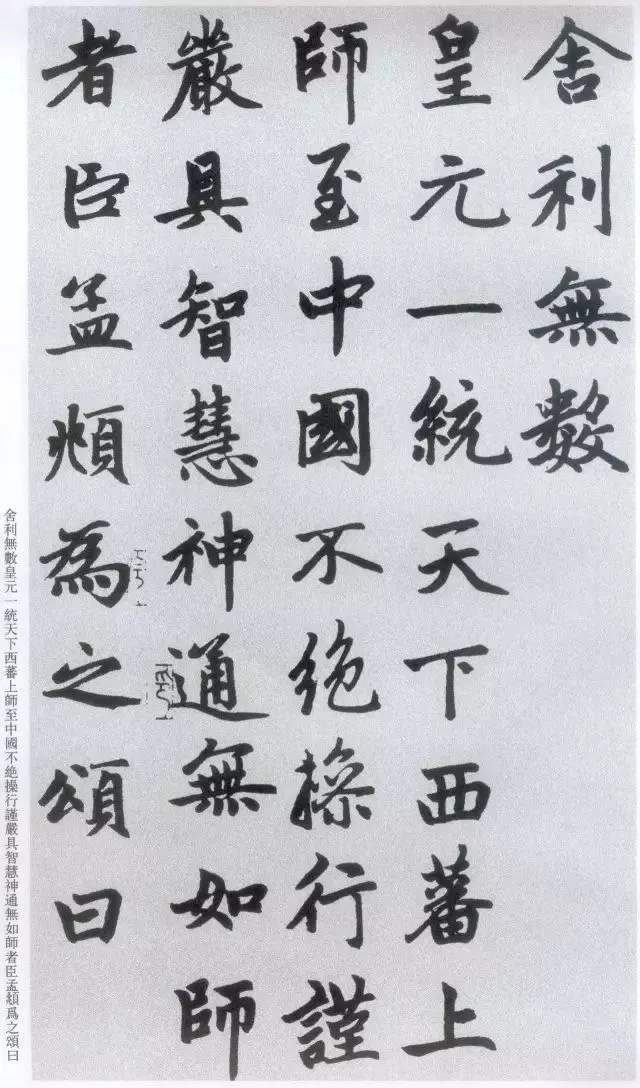 舍利無數
皇元一統天下西蕃上
師至中國不絕操行謹
嚴具智慧神通無如師
者臣孟頫為之頌曰
舍利無數皇元一統天下西蕃上師至中國不絕操行謹嚴具智慧神通無如師者臣孟頫爲之頌曰